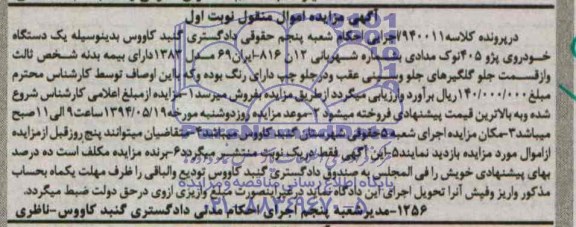 آگهی مزایده اموال منقول نوبت اول
درپرونده کلاسه ۹۴۰۰۱۱/اجرای احکام شعبه پنجم حقوقی دادگستری گنبد کاووس بدینوسیله یک دستگاه
خودروی پژو ۴۰۵نوک مدادی بشماره شهربانی ۱۲ن ۸۱۶-ایران۶۹ مدل ۱۳۸۳دارای بیمه بدنه شخص ثالث
وازقسمت جلو گلگیرهای جلو وسینی عقب ودرجلو چپ دارای رنگ بوده وکه باین اوصاف توسط کارشناس محترم
مبلغ۱۴۰/۰۰۰/۰۰۰ریال برآورد وارزیابی میگردد ازطریق مزایده بفروش میرسد۱-مزایده ازمبلغ اعلامی کارشناس شروع
شده وبه بالاترین قیمت پیشنهادی فروخته میشود ۲-موعد مزایده روزدوشنبه مورخه۱۳۹۴/۰۵/۱۹ساعت۹ الی۱۱صبح
میباشد۳-مکان مزایده اجرای شعبه ۵حقوقی شهرستان گنبد کاووس میباشد۴-متقاضیان میتوانند پنج روزقبل ازمزایده
ازاموال مورد مزایده بازدید نمایند۵-این آگهی فقط دریک نوبت منتشر میگردد۶-برنده مزایده مکلف است ده درصد
بهای پیشنهادی خویش را فی المجلس به صندوق دادگستری گنبد کاووس تودیع والباقی را ظرف مهلت یکماه بحساب
مذکور واریز وفیش آنرا تحویل اجرای این دادگاه نماید درغیراینصورت مبلغ واریزی ازوی درحق دولت ضبط میگردد.
۱۲۵۶-مدیرشعبه پنجم اجرای احکام مدنی دادگستری گنبد کاووس-ناظری
پایگاه اطلاع رسانی مناقصه و مزایده